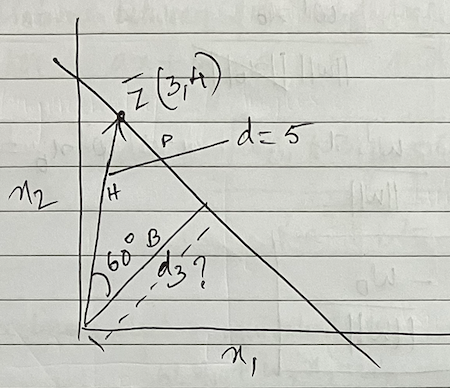 z̄ (3,4)
P
d = 5
x₂
H
60° B
d₃ ?
x₁